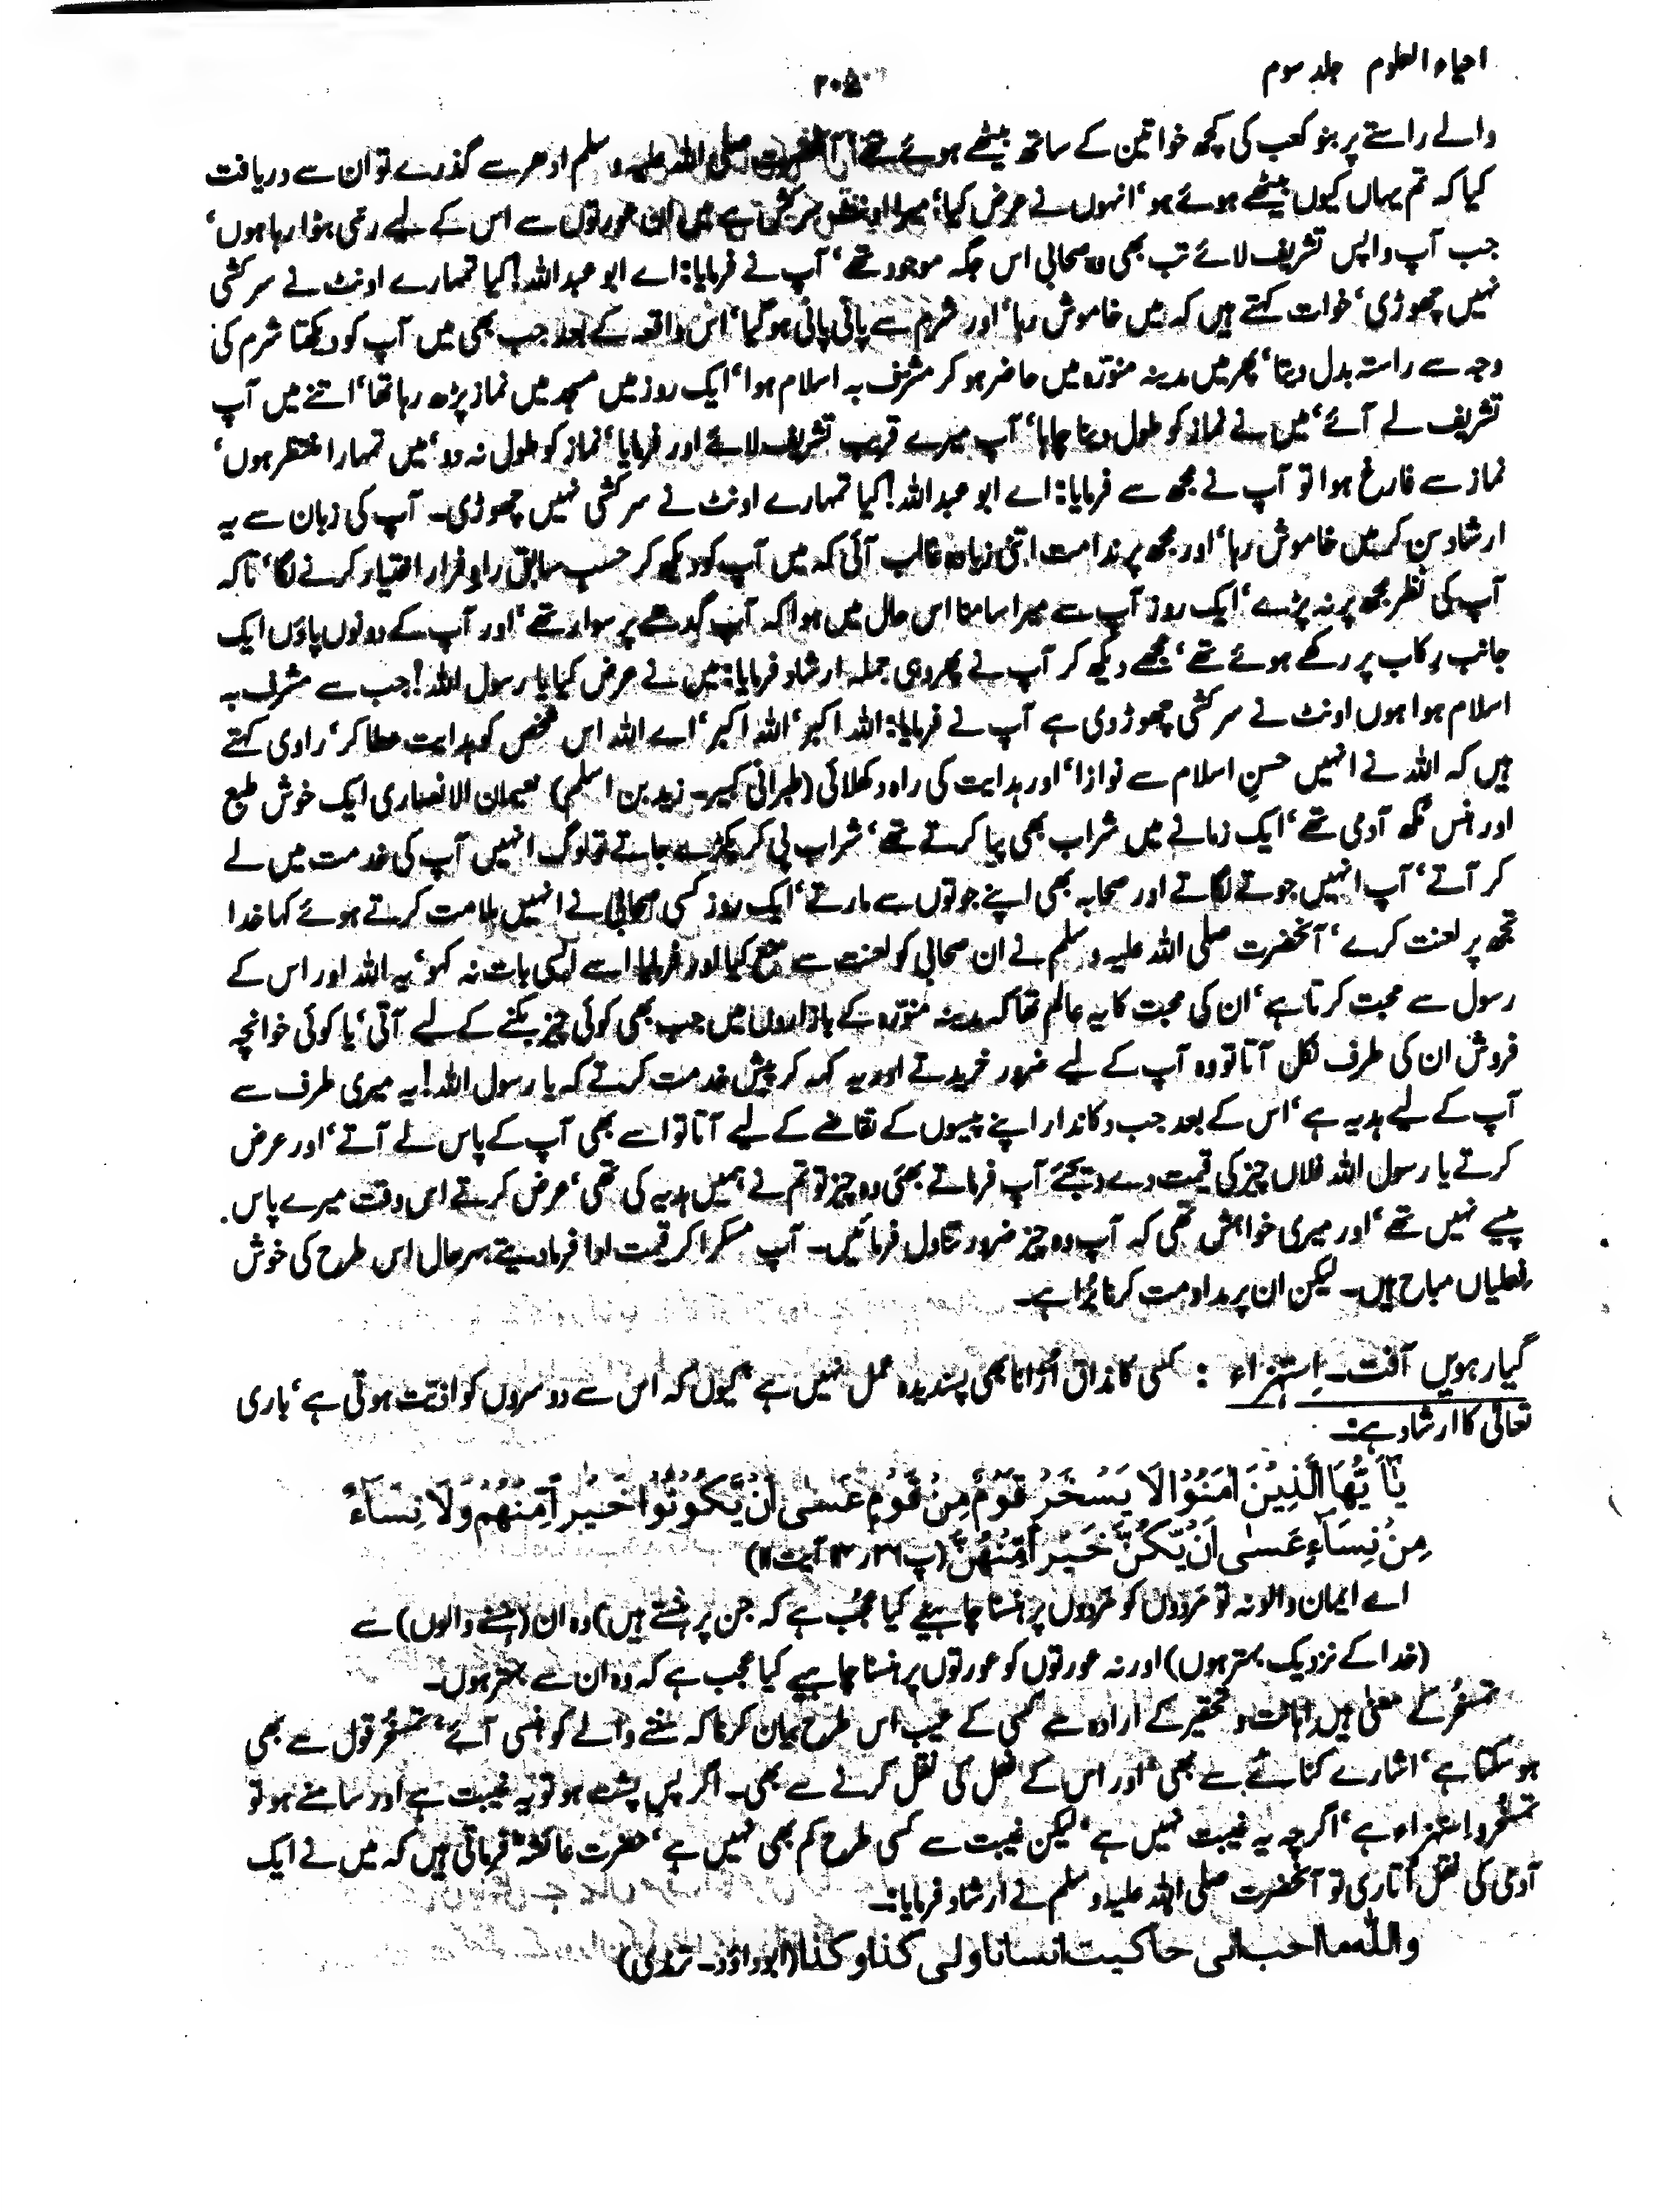 احیاء العلوم جلد سوم
۲۰۵
والے راستے پر بنو کعب کی کچھ خواتین کے ساتھ بیٹھے ہوئے تھے، آنحضرت صلی اللہ علیہ وسلم ادھر سے گذرے تو ان سے دریافت
کیا کہ تم یہاں کیوں بیٹھے ہوئے ہو، انہوں نے عرض کیا: میرا اونٹ سرکش ہے میں ان عورتوں سے اس کے لیے رسّی بنوا رہا ہوں،
جب آپ واپس تشریف لائے تب بھی وہ صحابی اس جگہ موجود تھے، آپ نے فرمایا: اے ابو عبداللہ! کیا تمہارے اونٹ نے سرکشی
نہیں چھوڑی، خوات کہتے ہیں کہ میں خاموش رہا، اور شرم سے پانی پانی ہو گیا، اس واقعہ کے بعد جب بھی میں آپ کو دیکھتا شرم کی
وجہ سے راستہ بدل دیتا، پھر میں مدینہ منوّرہ میں حاضر ہو کر مشرف بہ اسلام ہوا، ایک روز میں مسجد میں نماز پڑھ رہا تھا، اتنے میں آپ
تشریف لے آئے، میں نے نماز کو طول دینا چاہا، آپ میرے قریب تشریف لائے اور فرمایا، نماز کو طول نہ دو، میں تمہارا منتظر ہوں،
نماز سے فارغ ہوا تو آپ نے مجھ سے فرمایا: اے ابو عبداللہ! کیا تمہارے اونٹ نے سرکشی نہیں چھوڑی۔ آپ کی زبان سے یہ
ارشاد سن کر میں خاموش رہا، اور مجھ پر ندامت اتنی زیادہ غالب آئی کہ میں آپ کو دیکھ کر حسبِ سابق راہِ فرار اختیار کرنے لگا، تاکہ
آپ کی نظر مجھ پر نہ پڑے، ایک روز آپ سے میرا سامنا اس حال میں ہوا کہ آپ گدھے پر سوار تھے، اور آپ کے دونوں پاؤں ایک
جانب رکاب پر رکھے ہوئے تھے، مجھے دیکھ کر آپ نے پھر وہی جملہ ارشاد فرمایا: میں نے عرض کیا یا رسول اللہ! جب سے مشرف بہ
اسلام ہوا ہوں اونٹ نے سرکشی چھوڑ دی ہے آپ نے فرمایا: اللہ اکبر، اللہ اکبر، اے اللہ اس شخص کو ہدایت عطا کر، راوی کہتے
ہیں کہ اللہ نے انہیں حسنِ اسلام سے نوازا، اور ہدایت کی راہ دکھلائی (طبرانی کبیر۔ زید بن اسلم) نعیمان الانصاری ایک خوش طبع
اور ہنس مکھ آدمی تھے، ایک زمانے میں شراب بھی پیا کرتے تھے، شراب پی کر پکڑے جاتے تو لوگ انہیں آپ کی خدمت میں لے
کر آتے، آپ انہیں جوتے لگاتے اور صحابہ بھی اپنے جوتوں سے مارتے، ایک روز کسی صحابی نے انہیں ملامت کرتے ہوئے کہا خدا
تجھ پر لعنت کرے، آنحضرت صلی اللہ علیہ وسلم نے ان صحابی کو لعنت سے منع کیا اور فرمایا اسے ایسی بات نہ کہو، یہ اللہ اور اس کے
رسول سے محبت کرتا ہے، ان کی محبت کا یہ عالم تھا کہ مدینہ منوّرہ کے بازاروں میں جب بھی کوئی چیز بکنے کے لیے آتی، یا کوئی خوانچہ
فروش ان کی طرف نکل آتا تو وہ آپ کے لیے ضرور خریدتے اور یہ کہہ کر پیش خدمت کرتے کہ یا رسول اللہ! یہ میری طرف سے
آپ کے لیے ہدیہ ہے، اس کے بعد جب دکاندار اپنے پیسوں کے تقاضے کے لیے آتا تو اسے بھی آپ کے پاس لے آتے، اور عرض
کرتے یا رسول اللہ فلاں چیز کی قیمت دے دیجئے آپ فرماتے بھئی وہ چیز تو تم نے ہمیں ہدیہ کی تھی، عرض کرتے اس وقت میرے پاس
پیسے نہیں تھے، اور میری خواہش تھی کہ آپ وہ چیز ضرور تناول فرمائیں۔ آپ مسکرا کر قیمت ادا فرما دیتے بہرحال اس طرح کی خوش
فعلیاں مباح ہیں۔ لیکن ان پر مداومت کرنا بُرا ہے۔
گیارہویں آفت۔ اِستہزاء : کسی کا مذاق اُڑانا بھی پسندیدہ عمل نہیں ہے، کیوں کہ اس سے دوسروں کو اذیّت ہوتی ہے، باری
تعالیٰ کا ارشاد ہے:۔
يٰٓاَيُّهَا الَّذِيْنَ اٰمَنُوْا لَا يَسْخَرْ قَوْمٌ مِنْ قَوْمٍ عَسٰى اَنْ يَّكُوْنُوْا خَيْرًا مِّنْهُمْ وَلَا نِسَآءٌ
مِنْ نِسَآءٍ عَسٰى اَنْ يَّكُنَّ خَيْرًا مِّنْهُنَّ (پ۲۶ ر۱۳ آیت۱۱)
اے ایمان والو نہ تو مَردوں کو مَردوں پر ہنسنا چاہیئے کیا عجَب ہے کہ جن پر ہنستے ہیں) وہ ان (ہنسنے والوں) سے
(خدا کے نزدیک بہتر ہوں) اور نہ عورتوں کو عورتوں پر ہنسنا چاہیے کیا عجب ہے کہ وہ ان سے بہتر ہوں۔
تمسخُر کے معنیٰ ہیں اہانت و تحقیر کے ارادہ سے کسی کے عیب اس طرح بیان کرنا کہ سننے والے کو ہنسی آئے، تمسخُر قول سے بھی
ہو سکتا ہے، اشارے کنائے سے بھی، اور اس کے فعل کی نقل کرنے سے بھی۔ اگر پسِ پشت ہو تو یہ غیبت ہے اور سامنے ہو تو
تمسخُر و اِستہزاء ہے، اگرچہ یہ غیبت نہیں ہے، لیکن غیبت سے کسی طرح کم بھی نہیں ہے، حضرت عائشہؓ فرماتی ہیں کہ میں نے ایک
آدمی کی نقل اُتاری تو آنحضرت صلی اللہ علیہ وسلم نے ارشاد فرمایا:۔
واللّٰہ ما احب انی حاکیت انسانا ولی کذا وکذا (ابوداؤد۔ ترمذی)